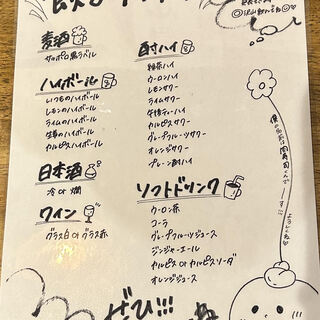 麦酒
サッポロ黒ラベル
ハイボール
いつものハイボール
レモンのハイボール
ライムのハイボール
生姜のハイボール
カルピスハイボール
日本酒
冷 or 燗
ワイン
グラス白 or グラス赤
酎ハイ
緑茶ハイ
ウーロンハイ
レモンサワー
ライムサワー
カルピスサワー
グレープフルーツサワー
オレンジサワー
プレーン酎ハイ
ソフトドリンク
ウーロン茶
コーラ
グレープフルーツジュース
ジンジャーエール
カルピス or カルピスソーダ
オレンジジュース
ぜひ!!!